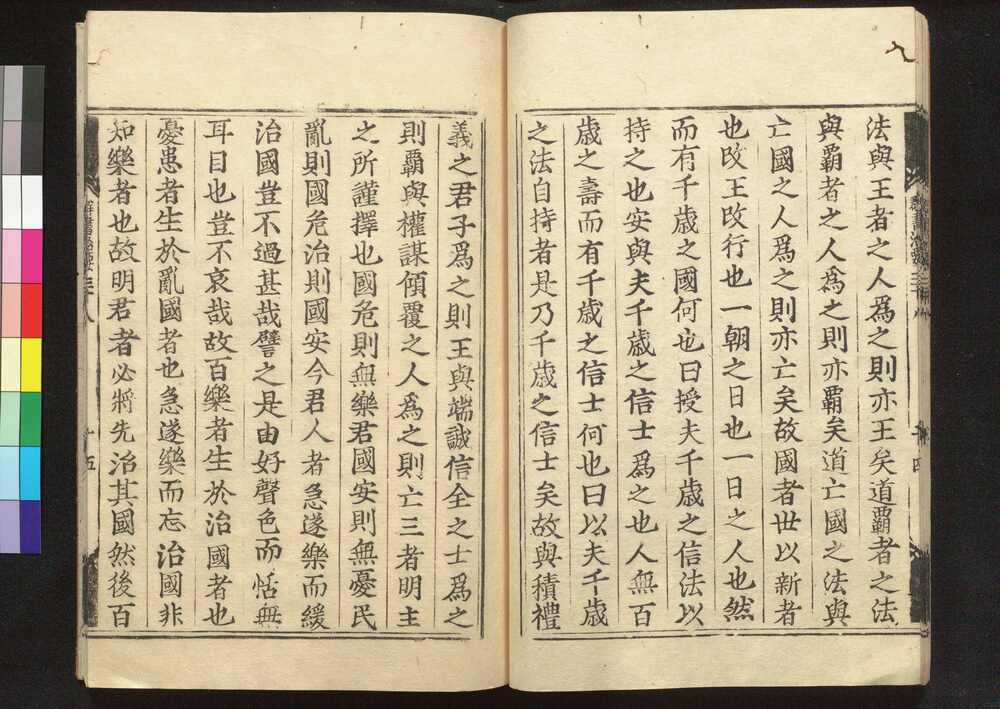 法與王者之人爲之則亦王矣道覇者之法
與覇者之人爲之則亦覇矣道亡國之法與
亡國之人爲之則亦亡矣故國者世以新者
也改王改行也一朝之日也一日之人也然
而有千歳之國何也曰授夫千歳之信法以
持之也安與夫千歳之信士爲之也人無百
歳之壽而有千歳之信士何也曰以夫千歳
之法自持者是乃千歳之信士矣故與積禮
義之君子爲之則王與端誠信全之士爲之
則覇與權謀傾覆之人爲之則亡三者明主
之所謹擇也國危則無樂君國安則無憂民
亂則國危治則國安今君人者急遂樂而緩
治國豈不過甚哉譬之是由好聲色而恬無
耳目也豈不哀哉故百樂者生於治國者也
憂患者生於亂國者也急遂樂而忘治國非
知樂者也故明君者必將先治其國然後百
羣書治要三十八
十四
羣書治要三十八
十五